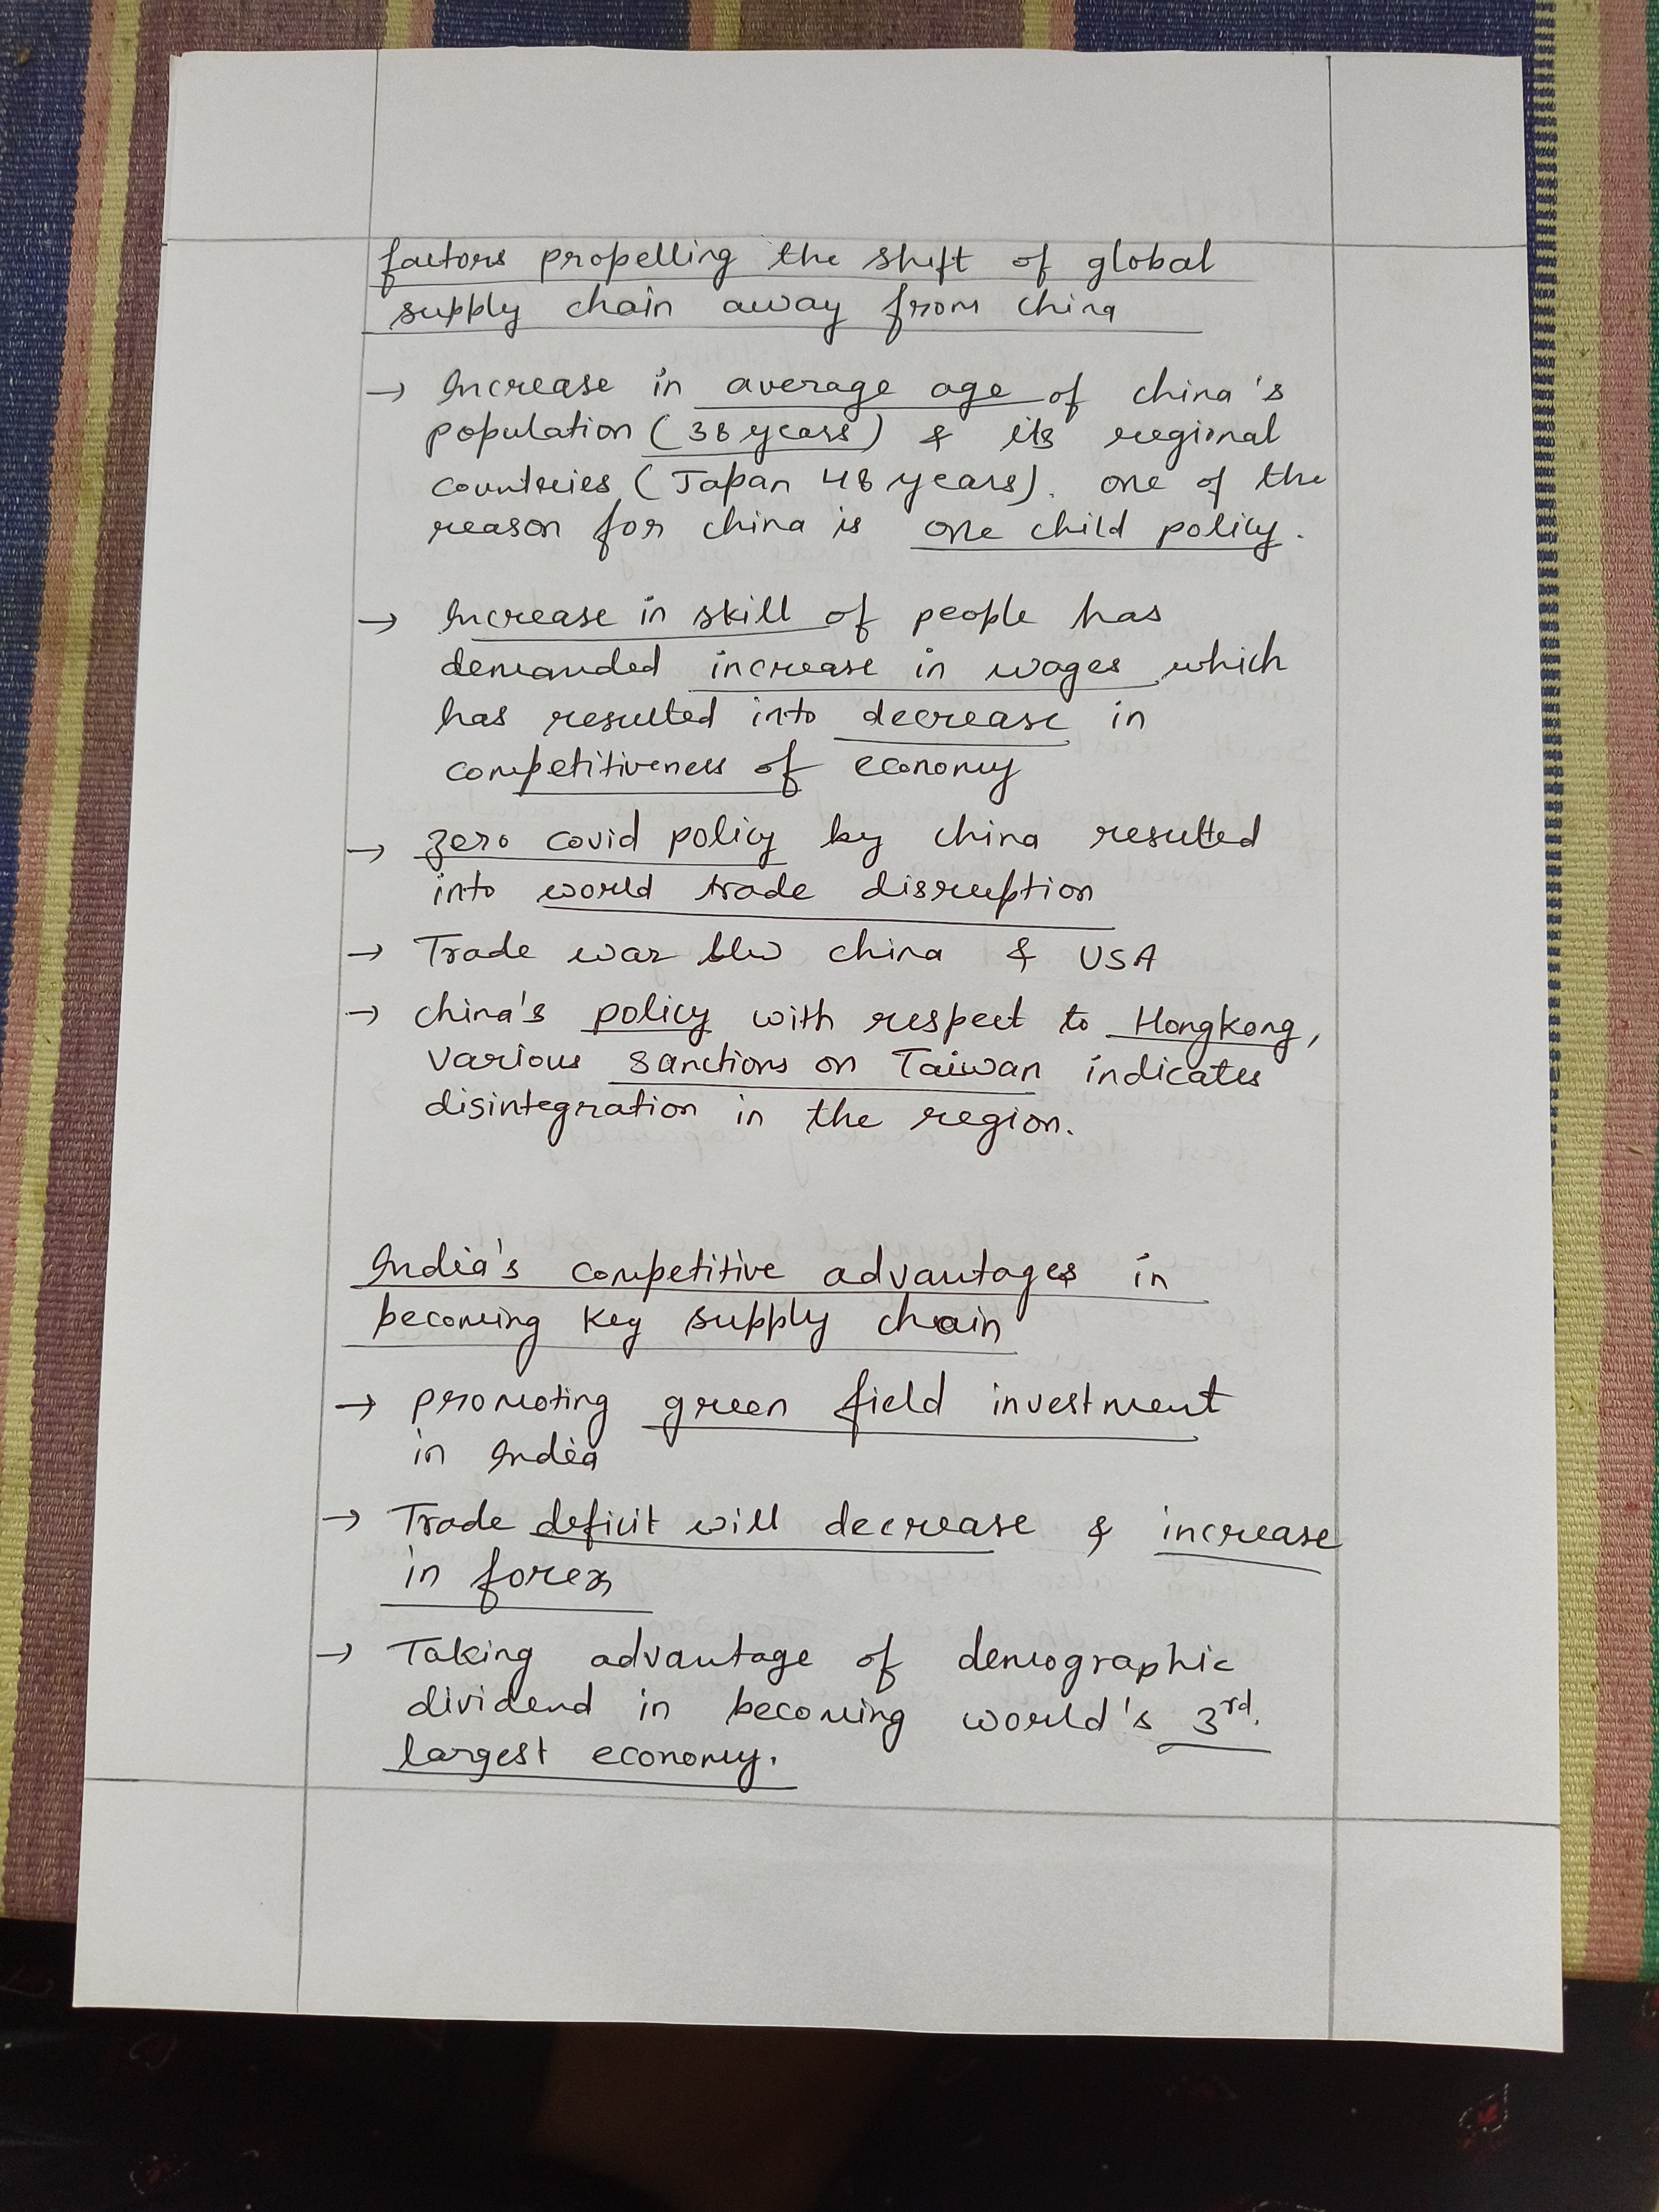 factors propelling the shift of global
supply chain away from china
→ Increase in average age of china's
population (38 years) & its regional
countries (Japan 48 years). one of the
reason for china is one child policy.
→ Increase in skill of people has
demanded increase in wages which
has resulted into decrease in
competitiveness of economy
→ zero covid policy by china resulted
into world trade disruption
→ Trade war b/w china & USA
→ china's policy with respect to Hongkong,
various sanctions on Taiwan indicates
disintegration in the region.
India's competitive advantages in
becoming key supply chain
→ promoting green field investment
in India
→ Trade deficit will decrease & increase
in forex
→ Taking advantage of demographic
dividend in becoming world's 3rd.
largest economy.